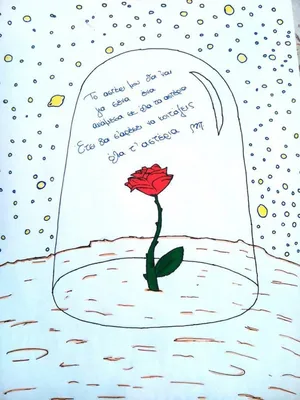 Το αστέρι μου θα 'ναι
για σένα ένα
ανάμεσα σε όλα τα αστέρια
Έτσι θα σ'αρέσει να κοιτάζεις
όλα τ' αστέρια